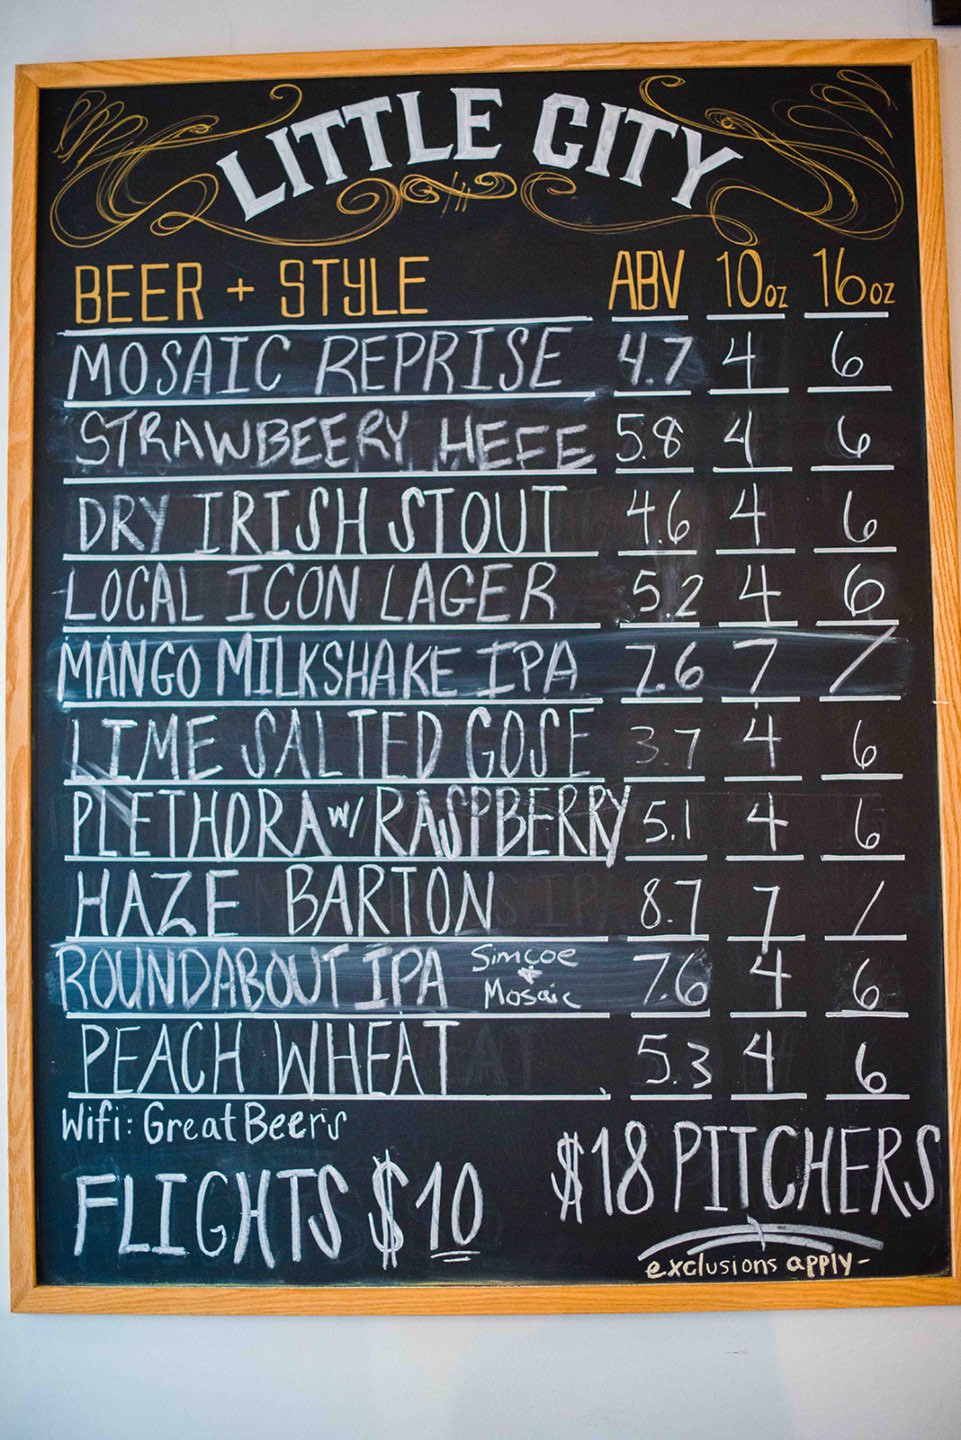 LITTLE CITY
BEER + STYLE ABV 10oz 16oz
MOSAIC REPRISE 4.7 4 6
STRAWBEERY HEFE 5.8 4 6
DRY IRISH STOUT 4.6 4 6
LOCAL ICON LAGER 5.2 4 6
MANGO MILKSHAKE IPA 7.6 7 /
LIME SALTED GOSE 3.7 4 6
PLETHORA w/ RASPBERRY 5.1 4 6
HAZE BARTON 8.7 7 /
ROUNDABOUT IPA Simcoe + Mosaic 7.6 4 6
PEACH WHEAT 5.3 4 6
Wifi: GreatBeers
FLIGHTS $10
$18 PITCHERS
exclusions apply-